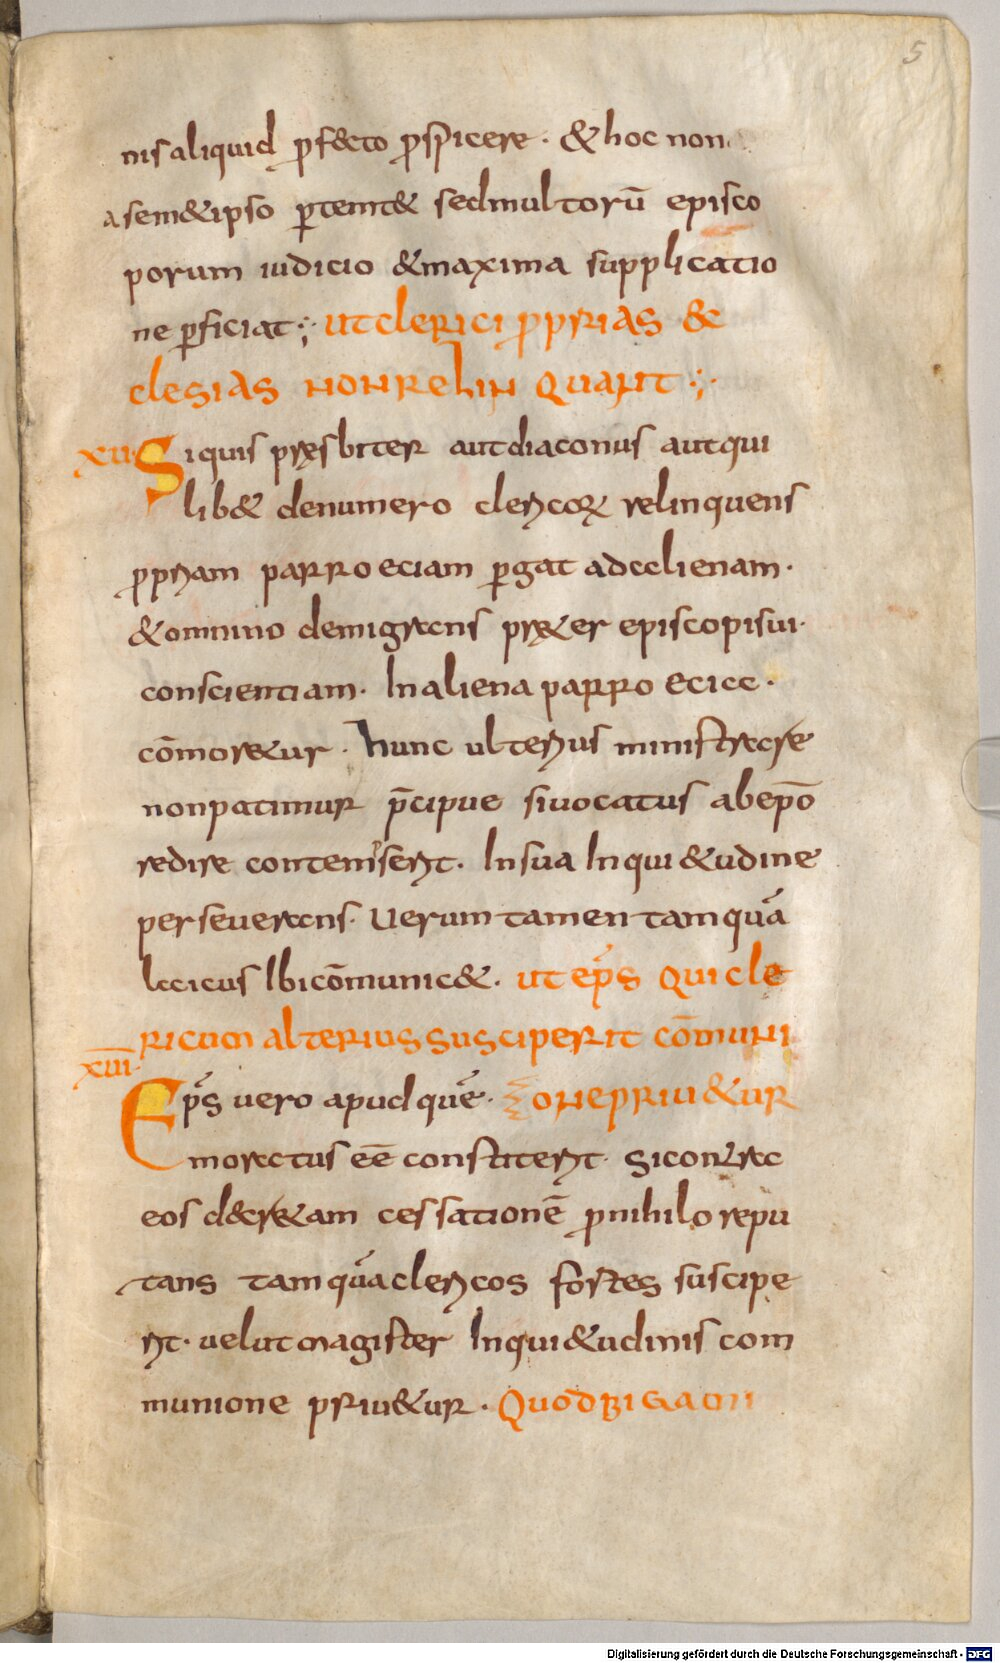 5
nis aliquid ꝓf&cto ꝓspicere · & hoc non
a sem&ipso ꝑtempt& sed multorū episco
porum iudicio &maxima supplicatio
ne ꝑficiat ; ut clerici ꝓprias &c
clesias non relinquant ;
XVI Si quis pręsbiter aut diaconus aut qui
lib& de numero clericoꝝ relinquens
ꝓpriam parroeciam ꝑgat ad clienam ·
& omnino demigrans pręt&er episcopi sui ·
conscientiam · In aliena parroecia ·
cōmor&ur · hunc ulterius ministrare
non patimur p̄cipue si uocatus ab ep̄o
redire contemserit · In sua Inqui&udine
perseuerans · Uerum tamen tamquā
laicus Ibi cōmunic& · ut ep̄s qui cle
ricum alterius susciperit cōmuni
XVII Ep̄s uero apud quē · one priu&ur
moratus eē constiterit · si contra
eos decr&am cessationē ꝓ nihilo repu
tans tamquā clericos fortes suscipe
rit · uelut magister Inqui&udinis com
munione priu&ur · Quod bigami
Digitalisierung gefördert durch die Deutsche Forschungsgemeinschaft - DFG